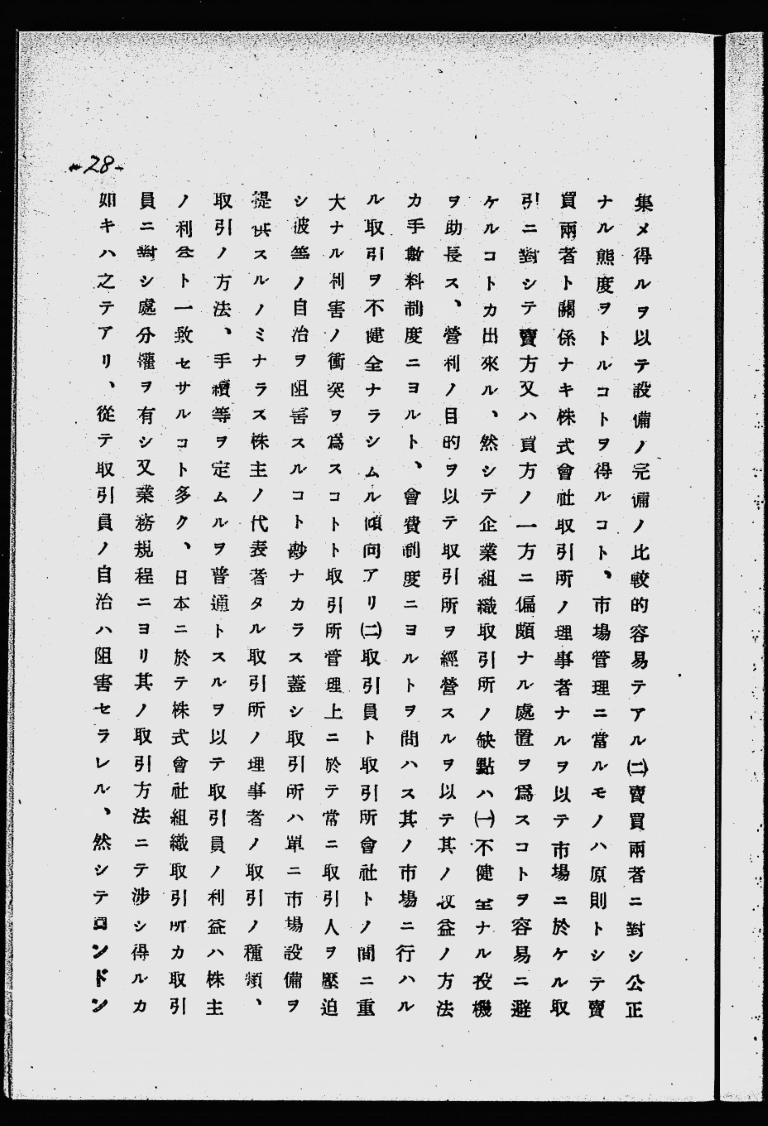 集メ得ルヲ以テ設備ノ完備ノ比較的容易テアル(二)賣買兩者ニ對シ公正
ナル態度ヲトルコトヲ得ルコト、市場管理ニ當ルモノハ原則トシテ賣
買兩者ト關係ナキ株式會社取引所ノ理事者ナルヲ以テ市場ニ於ケル取
引ニ對シテ賣方又ハ買方ノ一方ニ偏頗ナル處置ヲ爲スコトヲ容易ニ避
ケルコトカ出來ル、然シテ企業組織取引所ノ缺點ハ(一)不健全ナル投機
ヲ助長ス、營利ノ目的ヲ以テ取引所ヲ經營スルヲ以テ其ノ收益ノ方法
カ手數料制度ニヨルト、會費制度ニヨルトヲ問ハス其ノ市場ニ行ハル
ル取引ヲ不健全ナラシムル傾向アリ(二)取引員ト取引所會社トノ間ニ重
大ナル利害ノ衝突ヲ爲スコトト取引所管理上ニ於テ常ニ取引人ヲ壓迫
シ彼等ノ自治ヲ阻害スルコト尠ナカラス蓋シ取引所ハ單ニ市場設備ヲ
提供スルノミナラス株主ノ代表者タル取引所ノ理事者ノ取引ノ種類、
取引ノ方法、手續等ヲ定ムルヲ普通トスルヲ以テ取引員ノ利益ハ株主
ノ利益ト一致セサルコト多ク、日本ニ於テ株式會社組織取引所カ取引
員ニ對シ處分權ヲ有シ又業務規程ニヨリ其ノ取引方法ニテ涉シ得ルカ
如キハ之テアリ、從テ取引員ノ自治ハ阻害セラレル、然シテロンドン
-28-